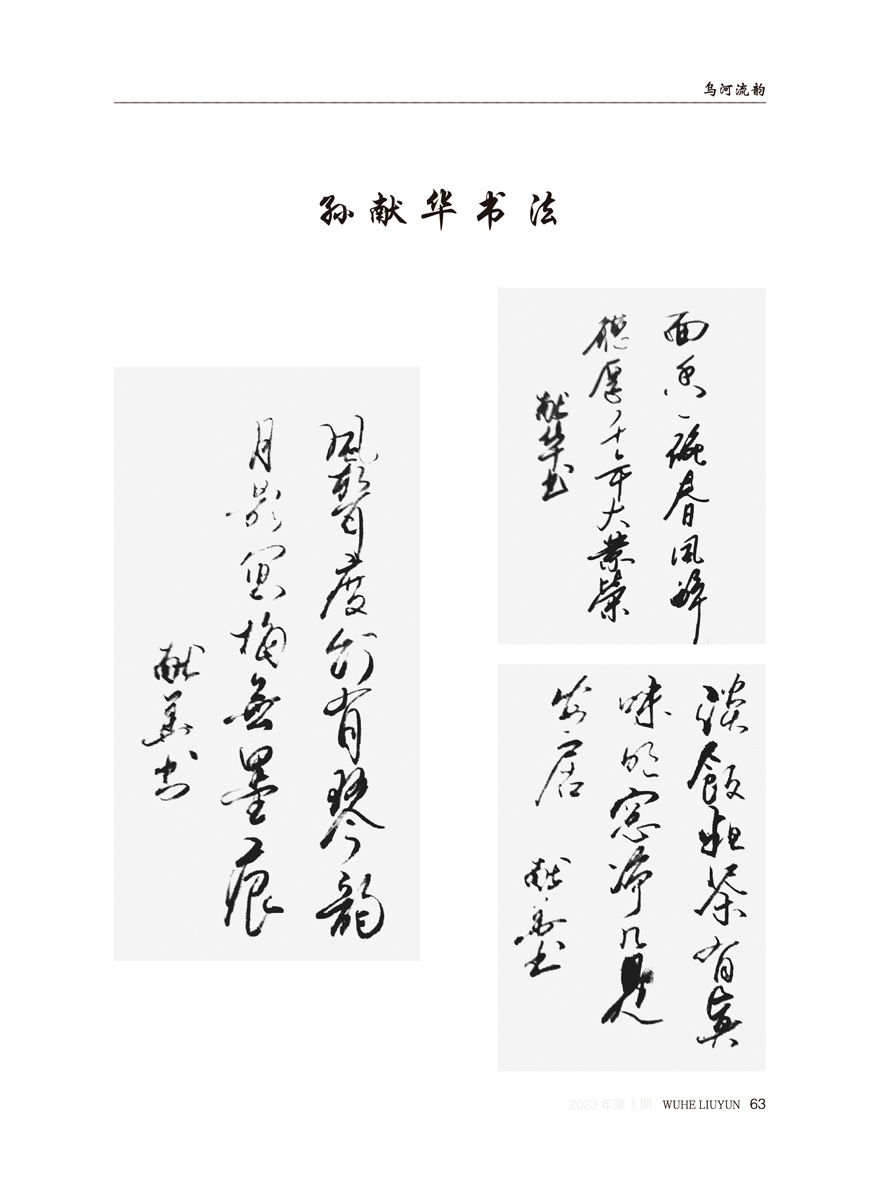 乌河流韵
孙献华书法
面香一碗春风醉
德厚千年大業榮
献华书
風聲度竹有琴韵
月影寫梅無墨痕
献华书
淡飯粗茶有真
味明窓净几是
安居
献华书
2023年第1期 WUHE LIUYUN 63